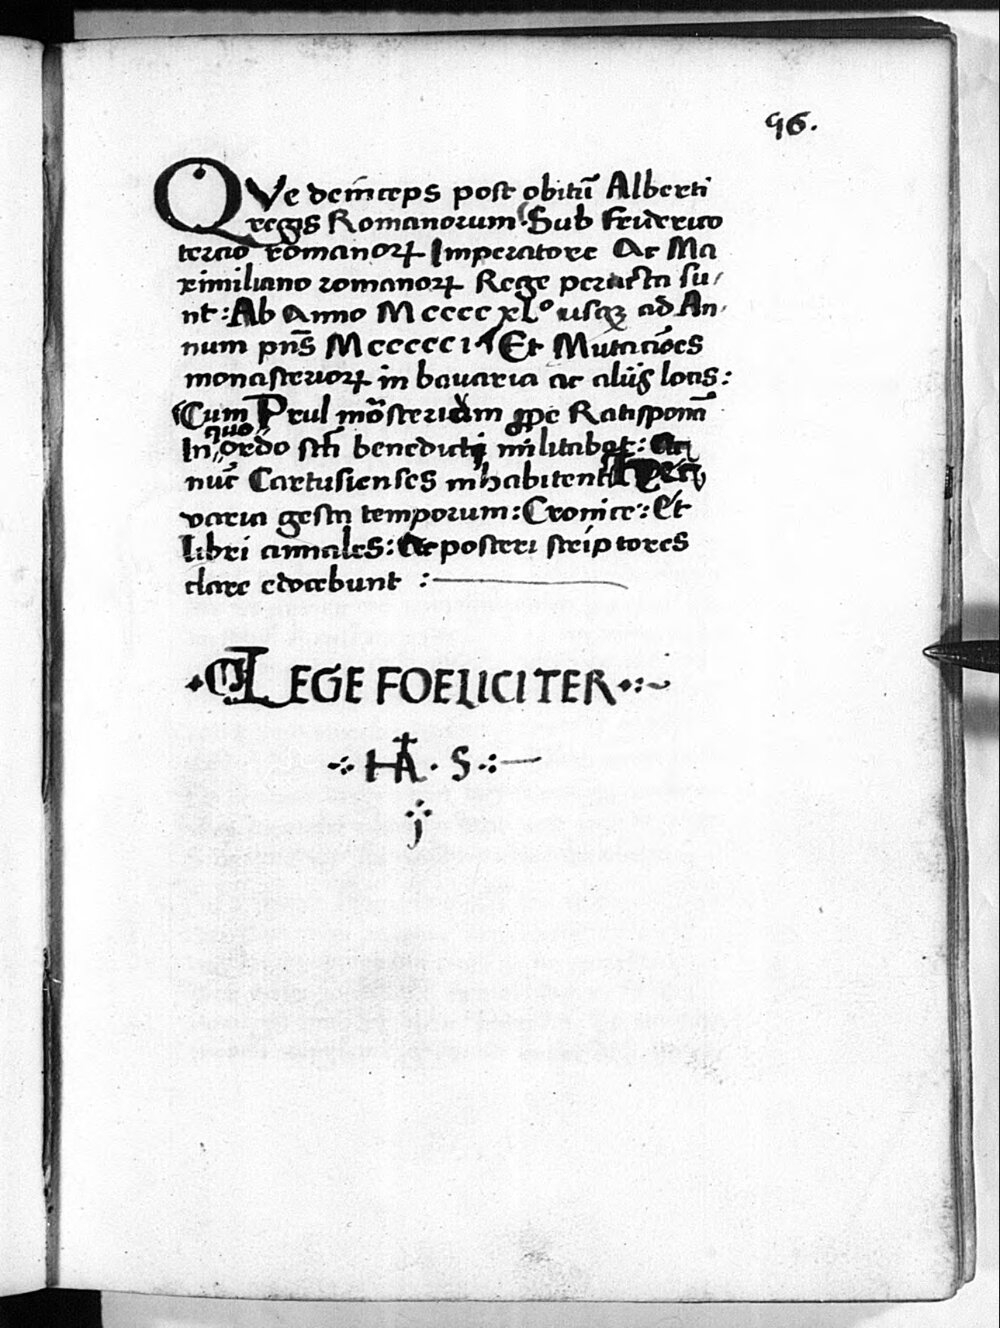 96.
QVe deinceps post obitū Alberti
regis Romanorum Sub Friderico
tercio romanoꝝ Imperatore Ac Ma
ximiliano romanoꝝ Rege peracta su/
nt : Ab Anno Mcccc xLº usqꝫ ad An,
num pn̄s Mccccc Et Mutac̄oēs
monasterioꝝ in bavaria ac aliis locis :
Cum Prul mōsterium ꝓpe Ratisponā
quo
In ordo scti benedicti militabat :
nūc Cartusienses inhabitent
varia gesta temporum : Cronice : Et
Libri annales : Ac posteri scriptores
clare edocebunt :
LEGE FOELICITER
HA . S